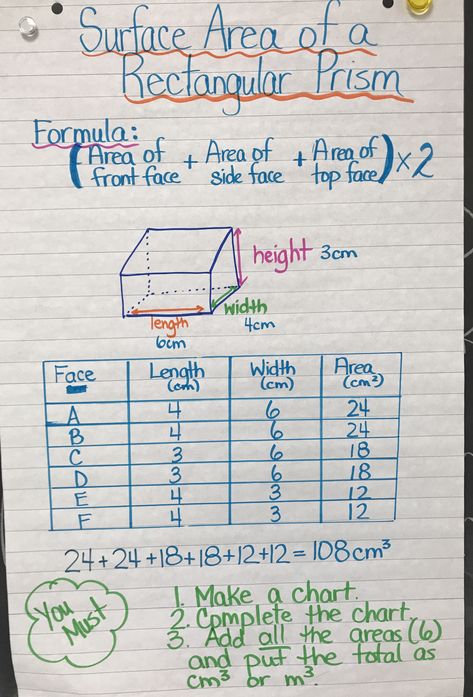 Surface Area of a
Rectangular Prism
Formula:
(Area of front face + Area of side face + Area of top face) × 2
height 3cm
width
4cm
length
6cm
Face Length (cm) Width (cm) Area (cm²)
A 4 6 24
B 4 6 24
C 3 6 18
D 3 6 18
E 4 3 12
F 4 3 12
24+24+18+18+12+12=108cm³
You Must
1. Make a chart.
2. Complete the chart.
3. Add all the areas (6)
and put the total as
cm³ or m³.